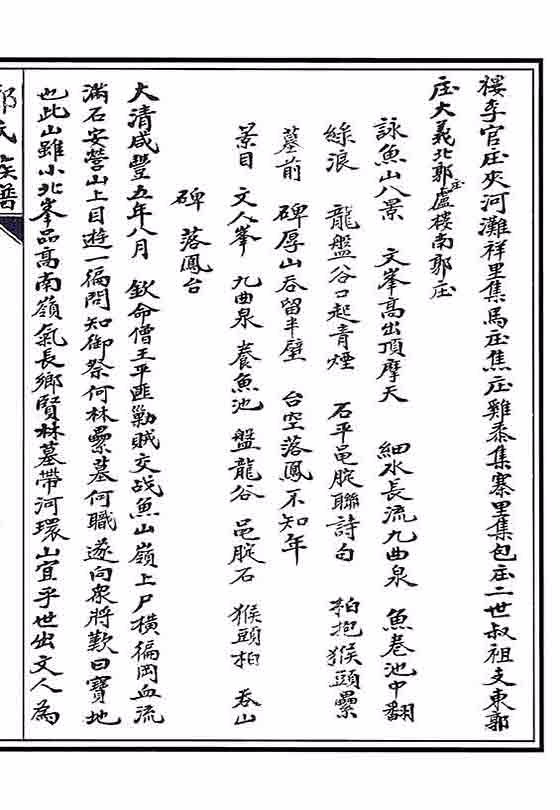 楼李官庄夹河灘祥里集馬庄焦庄雞黍集寨里集包庄二世叔祖支東郭
庄大義北郭庄盧楼南郭庄
詠魚山八景 文峯高出頂摩天 細水長流九曲泉 魚卷池中翻
綠浪 龍盤谷口起青煙 石平邑腚聯詩句 柏抱猴頭纍
墓前 碑厚山吞留半壁 台空落鳳不知年
景目 文人峯 九曲泉 養魚池 盤龍谷 邑腚石 猴頭柏 吞山
碑 落鳳台
大清咸豐五年八月 欽命僧王平匪勦賊交战魚山嶺上尸橫徧岡血流
滿石安營山上目遊一徧問知御祭何林纍墓何職遂向衆將歎曰寶地
也此山雖小北峯品高南嶺氣長鄉賢林墓帶河環山宜乎世出文人為
郭氏族譜